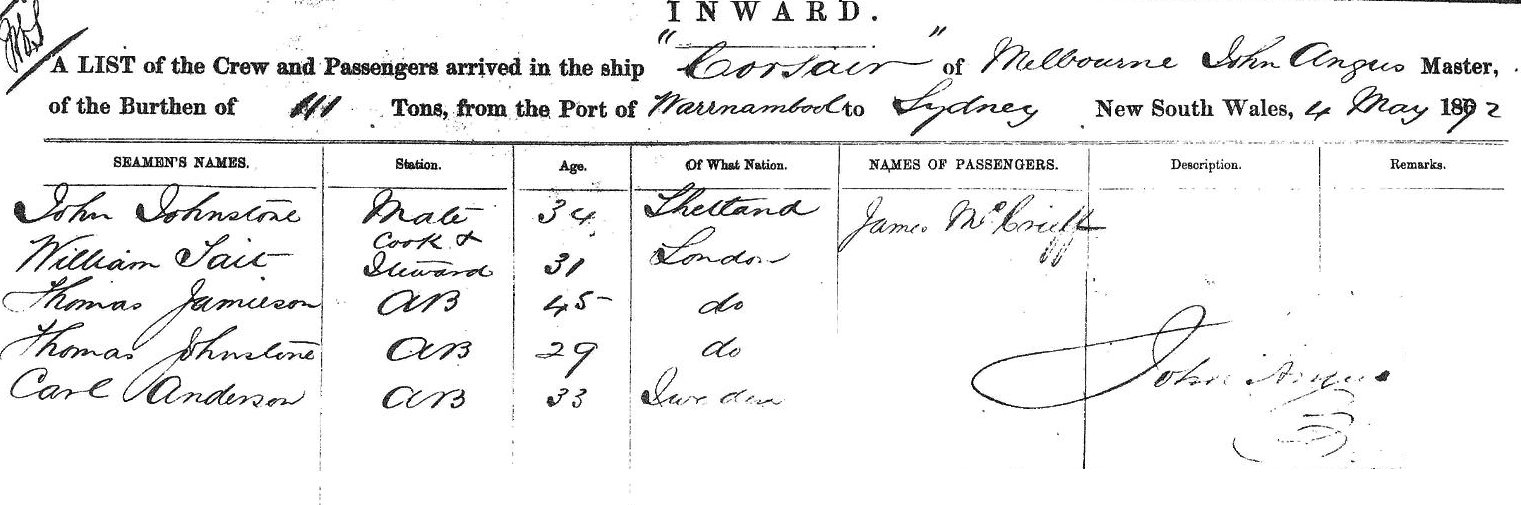 INWARD.
A LIST of the Crew and Passengers arrived in the ship "Corsair" of Melbourne John Angus Master,
of the Burthen of 111 Tons, from the Port of Warrnambool to Sydney New South Wales, 4 May 1872
SEAMEN'S NAMES. Station. Age. Of What Nation. NAMES OF PASSENGERS. Description. Remarks.
John Johnstone Mate 34 Shetland James McCrieff
William Tait Cook & Steward 31 London
Thomas Jamieson AB 45 do
Thomas Johnstone AB 29 do
Carl Anderson AB 33 Sweden
John Angus